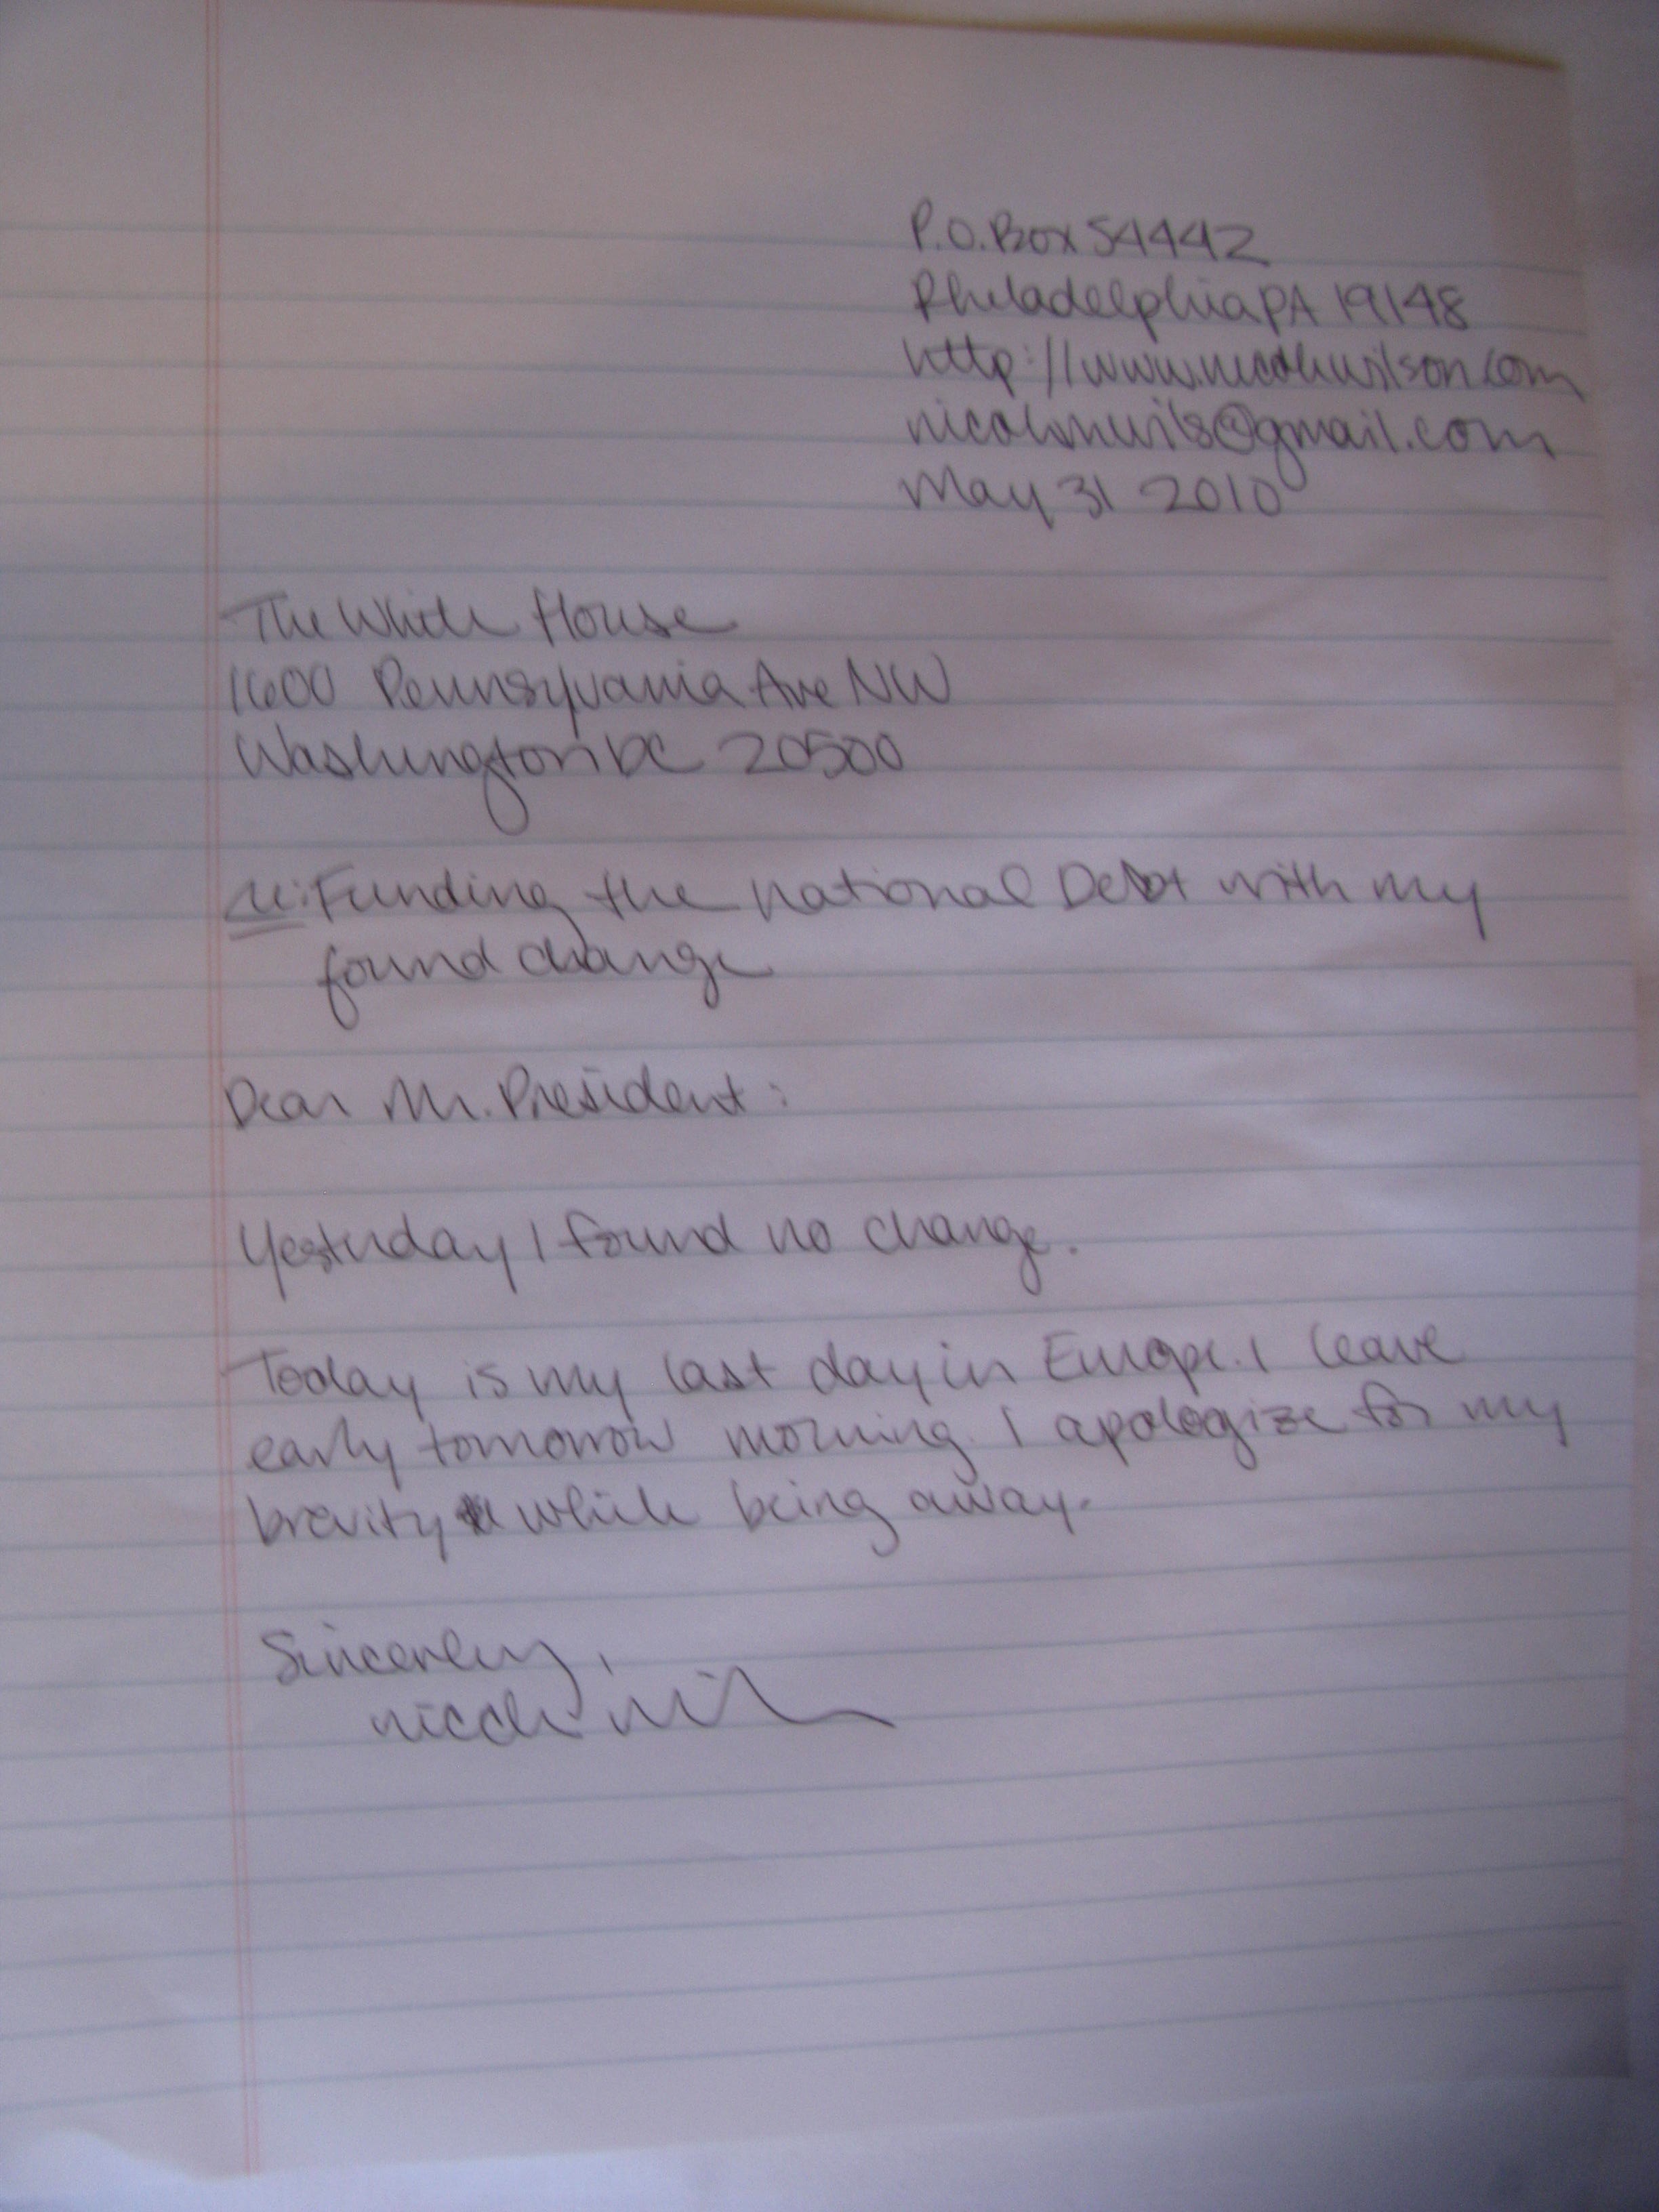 P.O. Box 54442
Philadelphia PA 19148
http://www.nicolewilson.com
nicolenwils@gmail.com
May 31 2010
The White House
1600 Pennsylvania Ave NW
Washington DC 20500
re: Funding the National Debt with my
found change
Dear Mr. President:
Yesterday I found no change.
Today is my last day in Europe. I leave
early tomorrow morning. I apologize for my
brevity while being away.
Sincerely,
Nicole Wilson